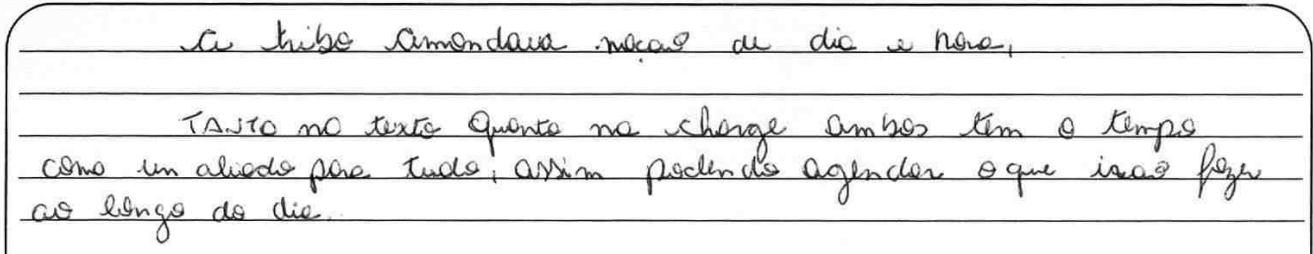 a tribo amondava noção de dia e hora,
TANTO no texto quanto na charge ambos tem o tempo
como um aliado para tudo, assim podendo agendar o que irão fazer
ao longo do dia.